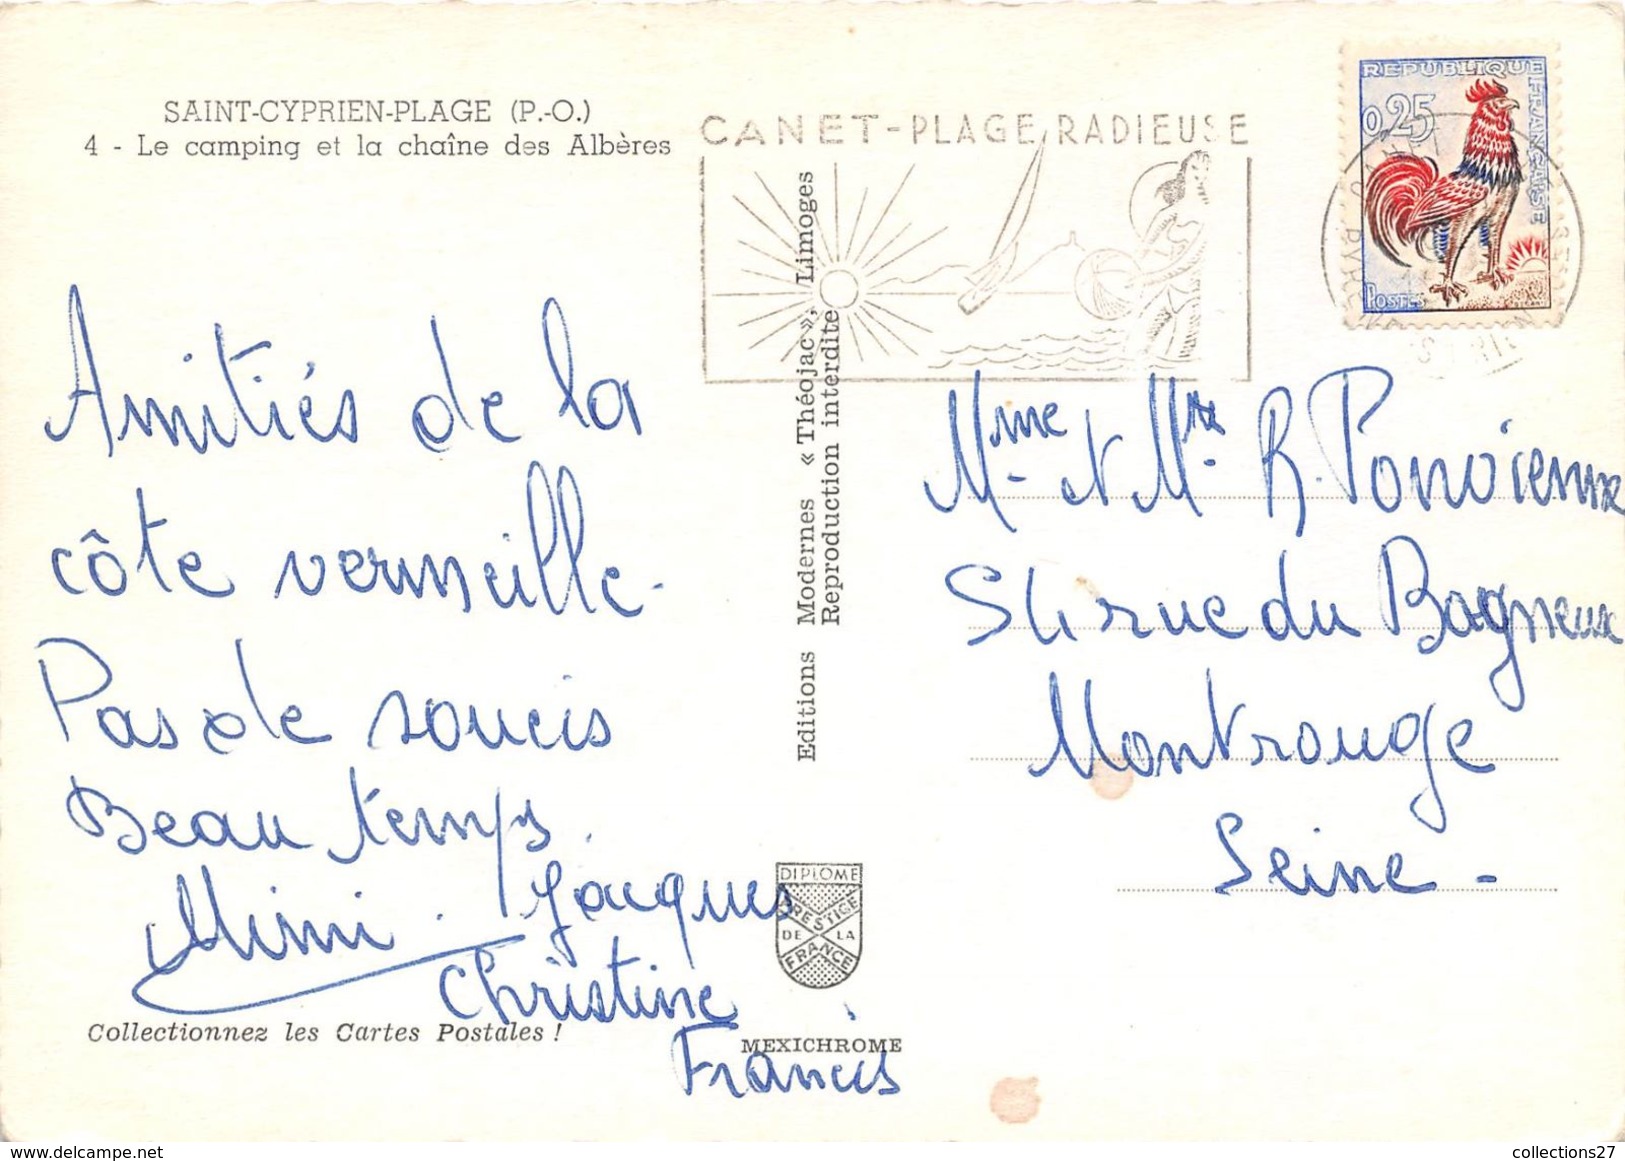 SAINT-CYPRIEN-PLAGE (P.-O.)
4 - Le camping et la chaîne des Albères
CANET-PLAGE RADIEUSE
REPUBLIQUE FRANÇAISE
0,25
POSTES
Amitiés de la
côte vermeille-
Pas de soucis
Beau temps.
Mimi. Jacques
Christine
Francis
Editions Modernes « Théojac », Limoges
Reproduction interdite
Mme et Mr R.
rue du Bagneux
Montrouge
Seine -
DIPLOME
PRESTIGE
DE LA
FRANCE
Collectionnez les Cartes Postales !
MEXICHROME
collections27